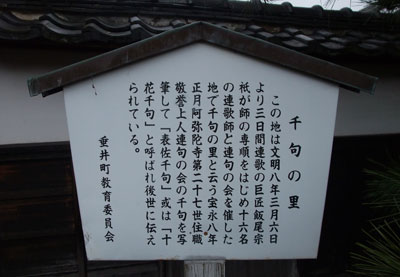 千句の里
この地は文明八年三月六日
より三日間連歌の巨匠飯尾宗
祇が師の専順をはじめ十六名
の連歌師と連句の会を催した
地で千句の里と云う宝永八年
正月阿弥陀寺第二十七世住職
敬誉上人連句の会の千句を写
筆して「表佐千句」或は「十
花千句」と呼ばれ後世に伝え
られている。
垂井町教育委員会